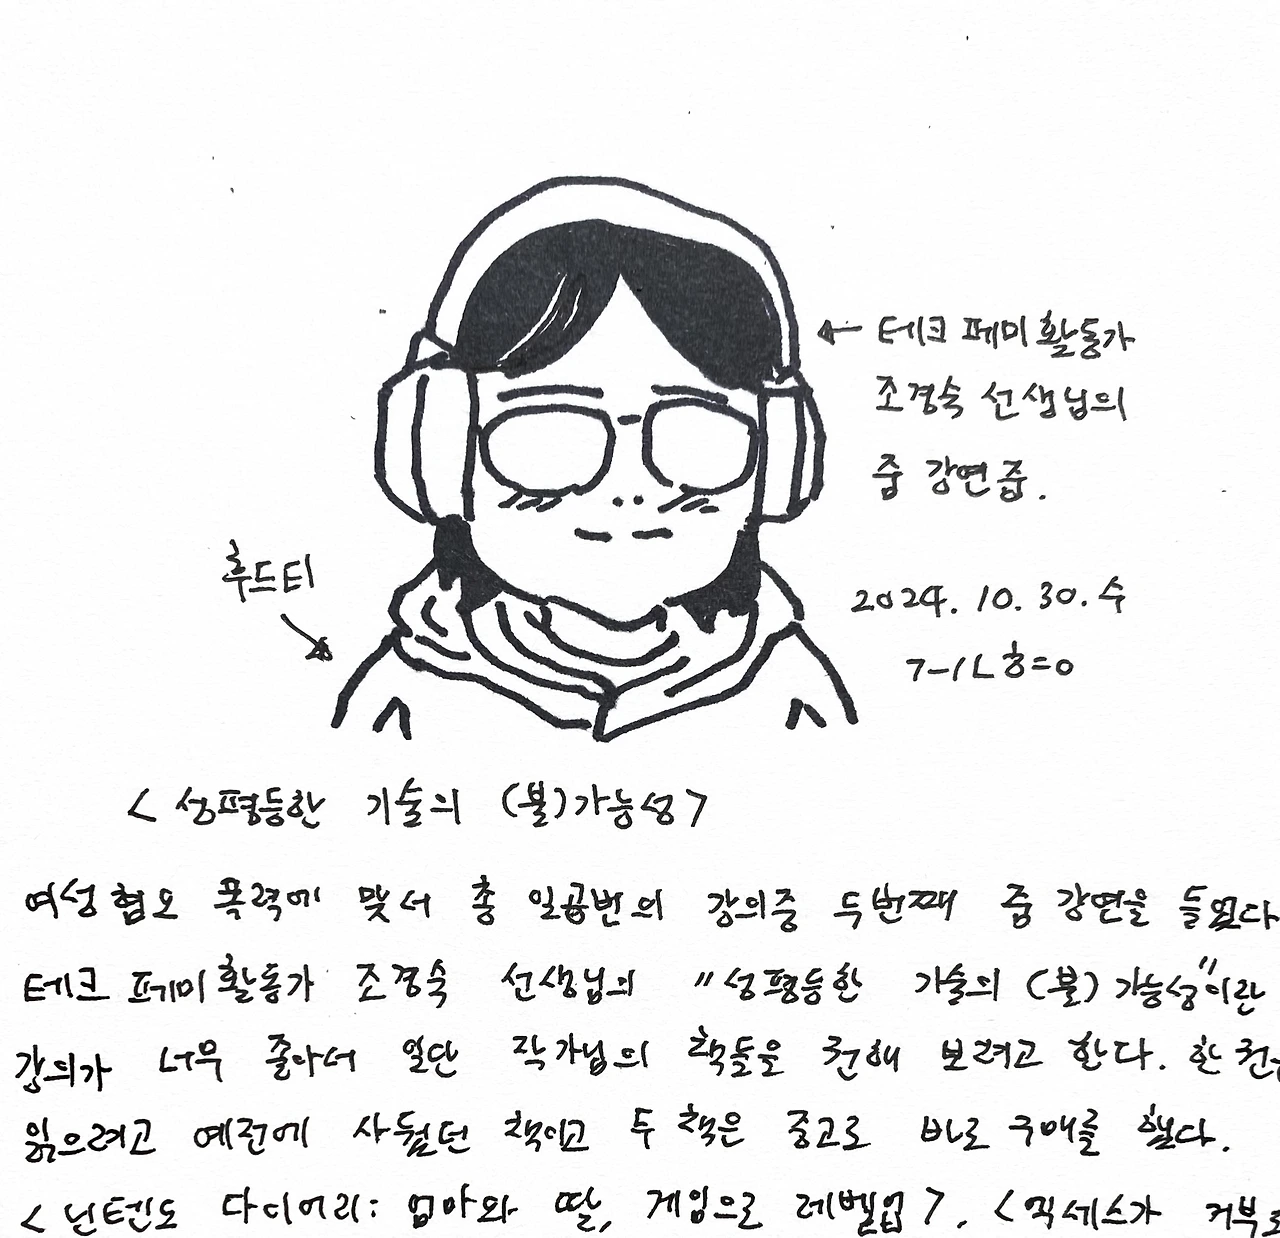 ← 테크 페미 활동가
조경숙 선생님의
줌 강연 중.
후드티
2024. 10. 30. 수
<성평등한 기술의 (불)가능성>
여성 혐오 폭력에 맞서 총 일곱번의 강의중 두번째 줌 강연을 들었다
테크 페미 활동가 조경숙 선생님의 "성평등한 기술의 (불)가능성"이란
강의가 너무 좋아서 일단 작가님의 책들을 전해 보려고 한다. 한 권은
읽으려고 예전에 사뒀던 책이고 두 책은 중고로 바로 구매를 했다.
<닌텐도 다이어리: 엄마와 딸, 게임으로 레벨업>, <액세스가 거부되